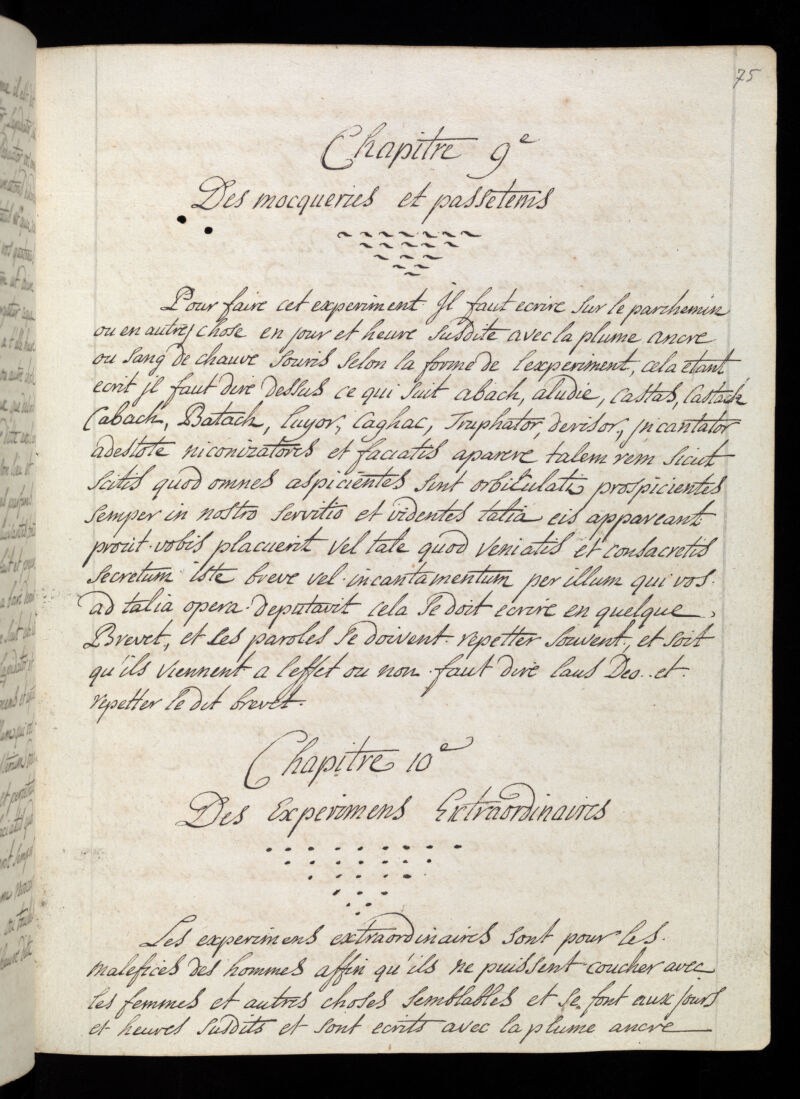 75
Chapitre 9e
Des mocqueries et passetems
Pour faire cet experiment Jl faut ecrire sur le parchemin
ou en autre chose en jour et heure susdite avec la plume ancre
ou sang de chauve souris selon la forme de l'experiment, cela etant
ecrit jl faut dire dessus ce qui suit abach, aludie, castas, castach
Cabach, Batach, luyor, Caghac, Truphator, derisor, jncantator
adestote niconizatores et faciatis aparere talem rem sicut
scitis quod omnes aspicientes sint orbiculati prospicientes
semper in nostro servitio et videntes talia eis appareant
prout vobis placuerit vel tale quod veniatis et consacretis
secretum iste breve vel incantamentum per illum qui vos
ad talia opera deputavit cela se doit ecrire en quelque
Brevet, et les paroles se doivent repetter souvent, et soit
qu'ils viennent a l'effet ou non faut dire laus Deo et
repetter le dit brevet.
Chapitre 10e
Des Experimens Extraordinaires
Les experimens extraordinaires sont pour les
malefices des hommes affin qu'ils ne puissent coucher avec
les femmes et autres choses semblables et se font aux jours
et heures susdits et sont ecrits avec la plume ancre